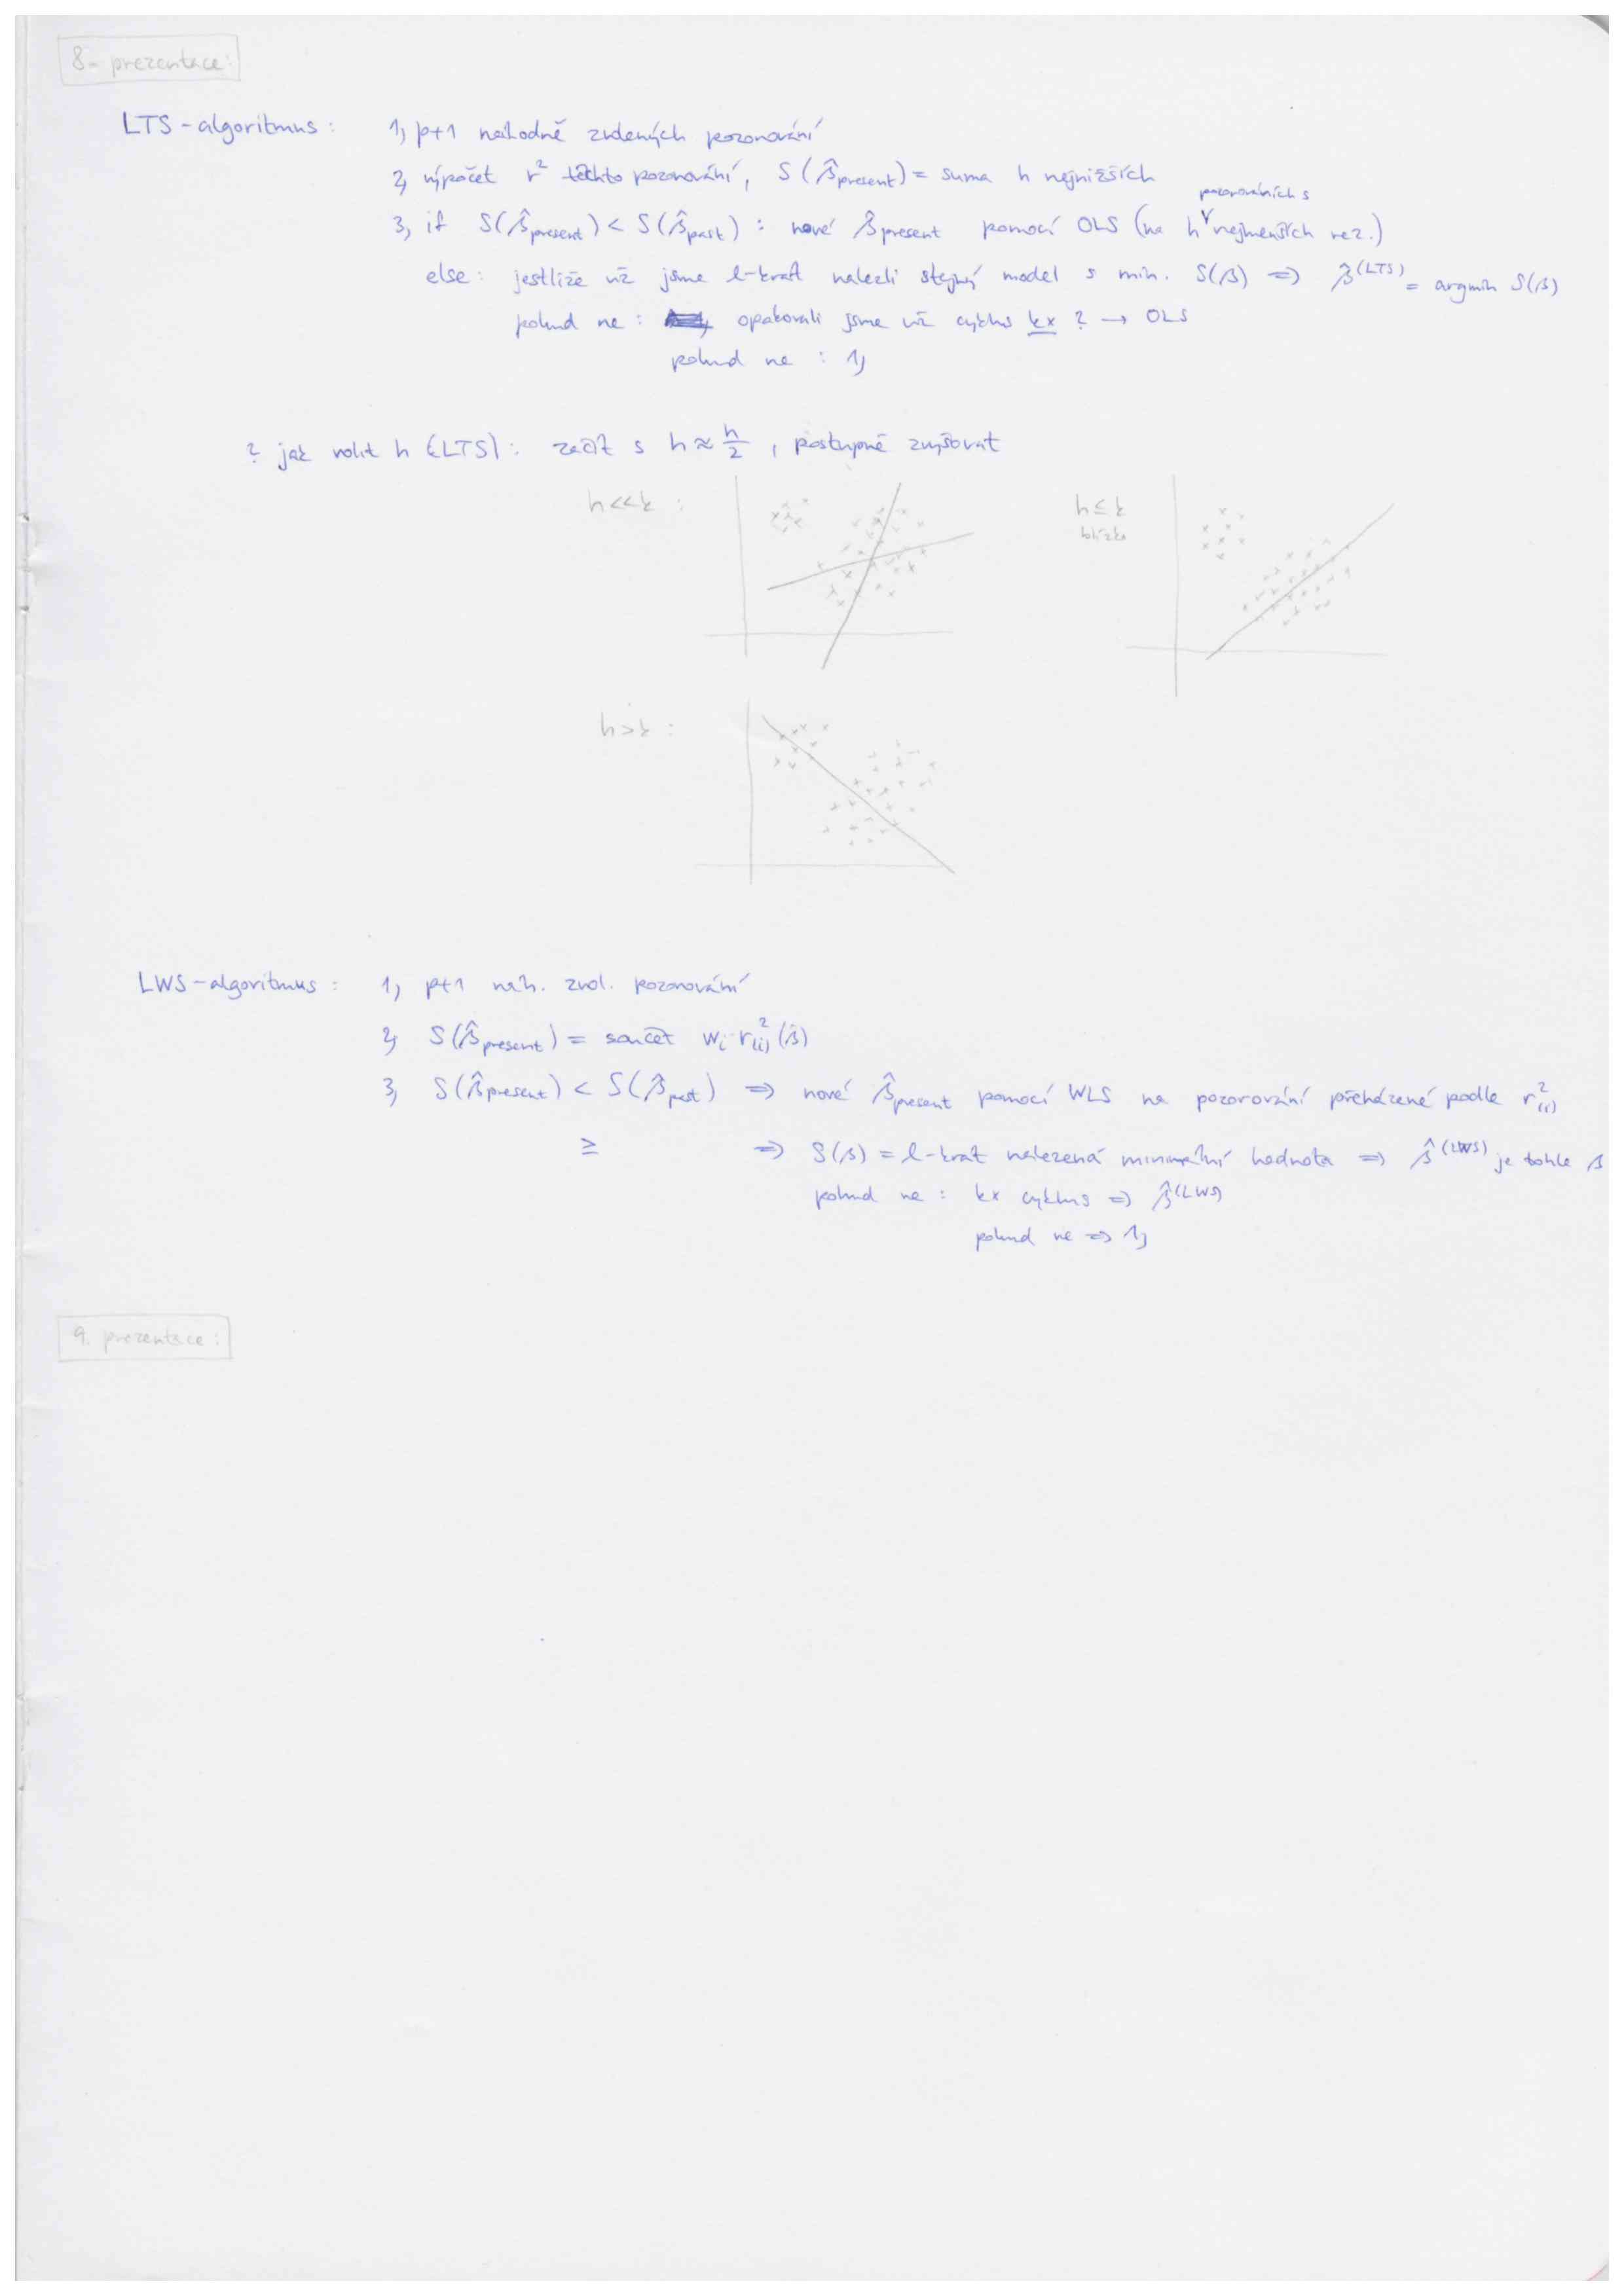 8. prezentace:
LTS-algoritmus: 1, p+1 náhodně zvolených pozorování
2, výpočet r² těchto pozorování, S(β̂present) = suma h nejnižších
3, if S(β̂present) < S(β̂past) : nové β̂present pomocí OLS (na h pozorováních s nejmenších rez.)
else: jestliže už jsme l-krát nalezli stejný model s min. S(β) ⇒ β̂^(LTS) = argmin S(β)
pokud ne : opakovali jsme už cyklus kx ? → OLS
pokud ne : 1,
? jak volit h (LTS): začít s h ≈ n/2 , postupně zvyšovat
h<<k :
h≤k
blízko
h>k :
LWS-algoritmus: 1, p+1 náh. zvol. pozorování
2, S(β̂present) = součet wᵢ·r²₍ᵢ₎(β)
3, S(β̂present) < S(β̂past) ⇒ nové β̂present pomocí WLS na pozorování přeházené podle r²₍ᵢ₎
≥ ⇒ S(β) = l-krát nalezená minimální hodnota ⇒ β̂^(LWS) je tohle β
pokud ne : kx cyklus ⇒ β̂^(LWS)
pokud ne ⇒ 1,
9. prezentace: